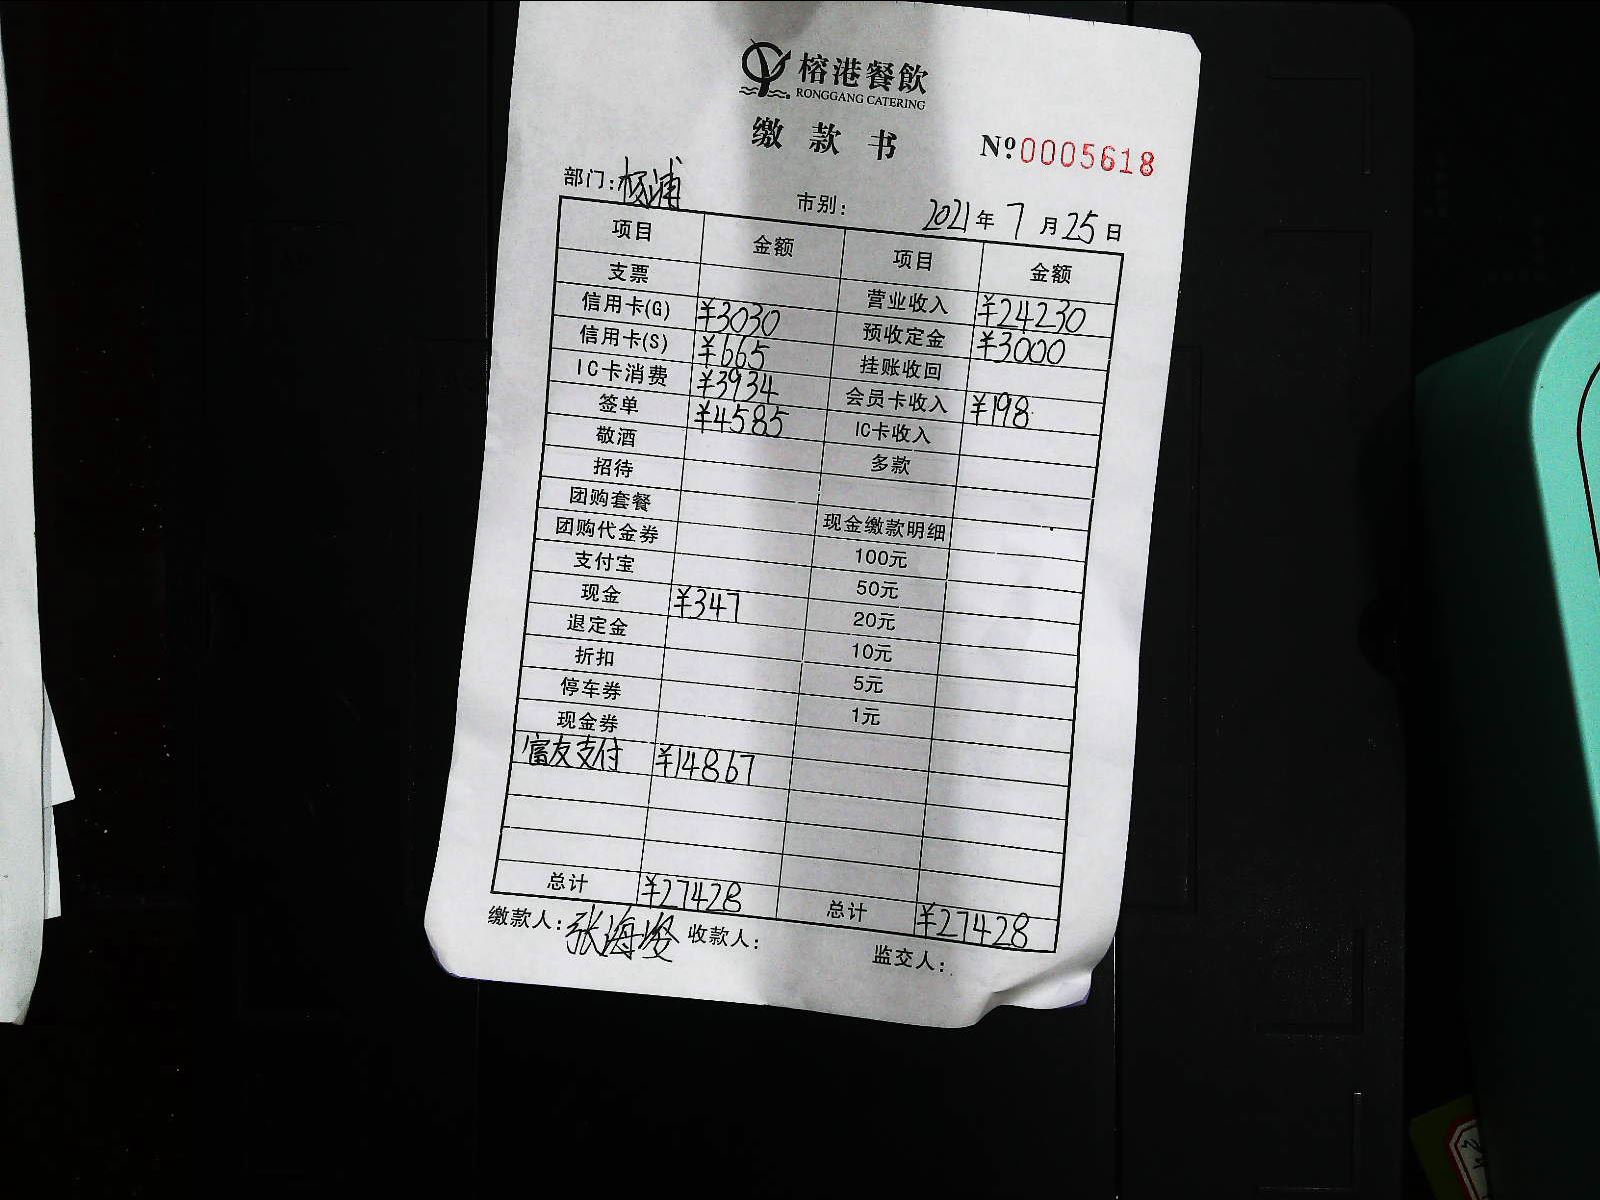 榕港餐飲
RONGGANG CATERING
缴款书
Nº0005618
部门：杨浦 市别： 2021年7月25日
项目 金额 项目 金额
支票 营业收入 ¥24230
信用卡(G) ¥3030 预收定金 ¥3000
信用卡(S) ¥665 挂账收回
IC卡消费 ¥3934 会员卡收入 ¥198
签单 ¥4585 IC卡收入
敬酒 多款
招待
团购套餐 现金缴款明细
团购代金券 100元
支付宝 50元
现金 ¥347 20元
退定金 10元
折扣 5元
停车券 1元
现金券
富友支付 ¥14867
总计 ¥27428 总计 ¥27428
缴款人：张海 收款人： 监交人：